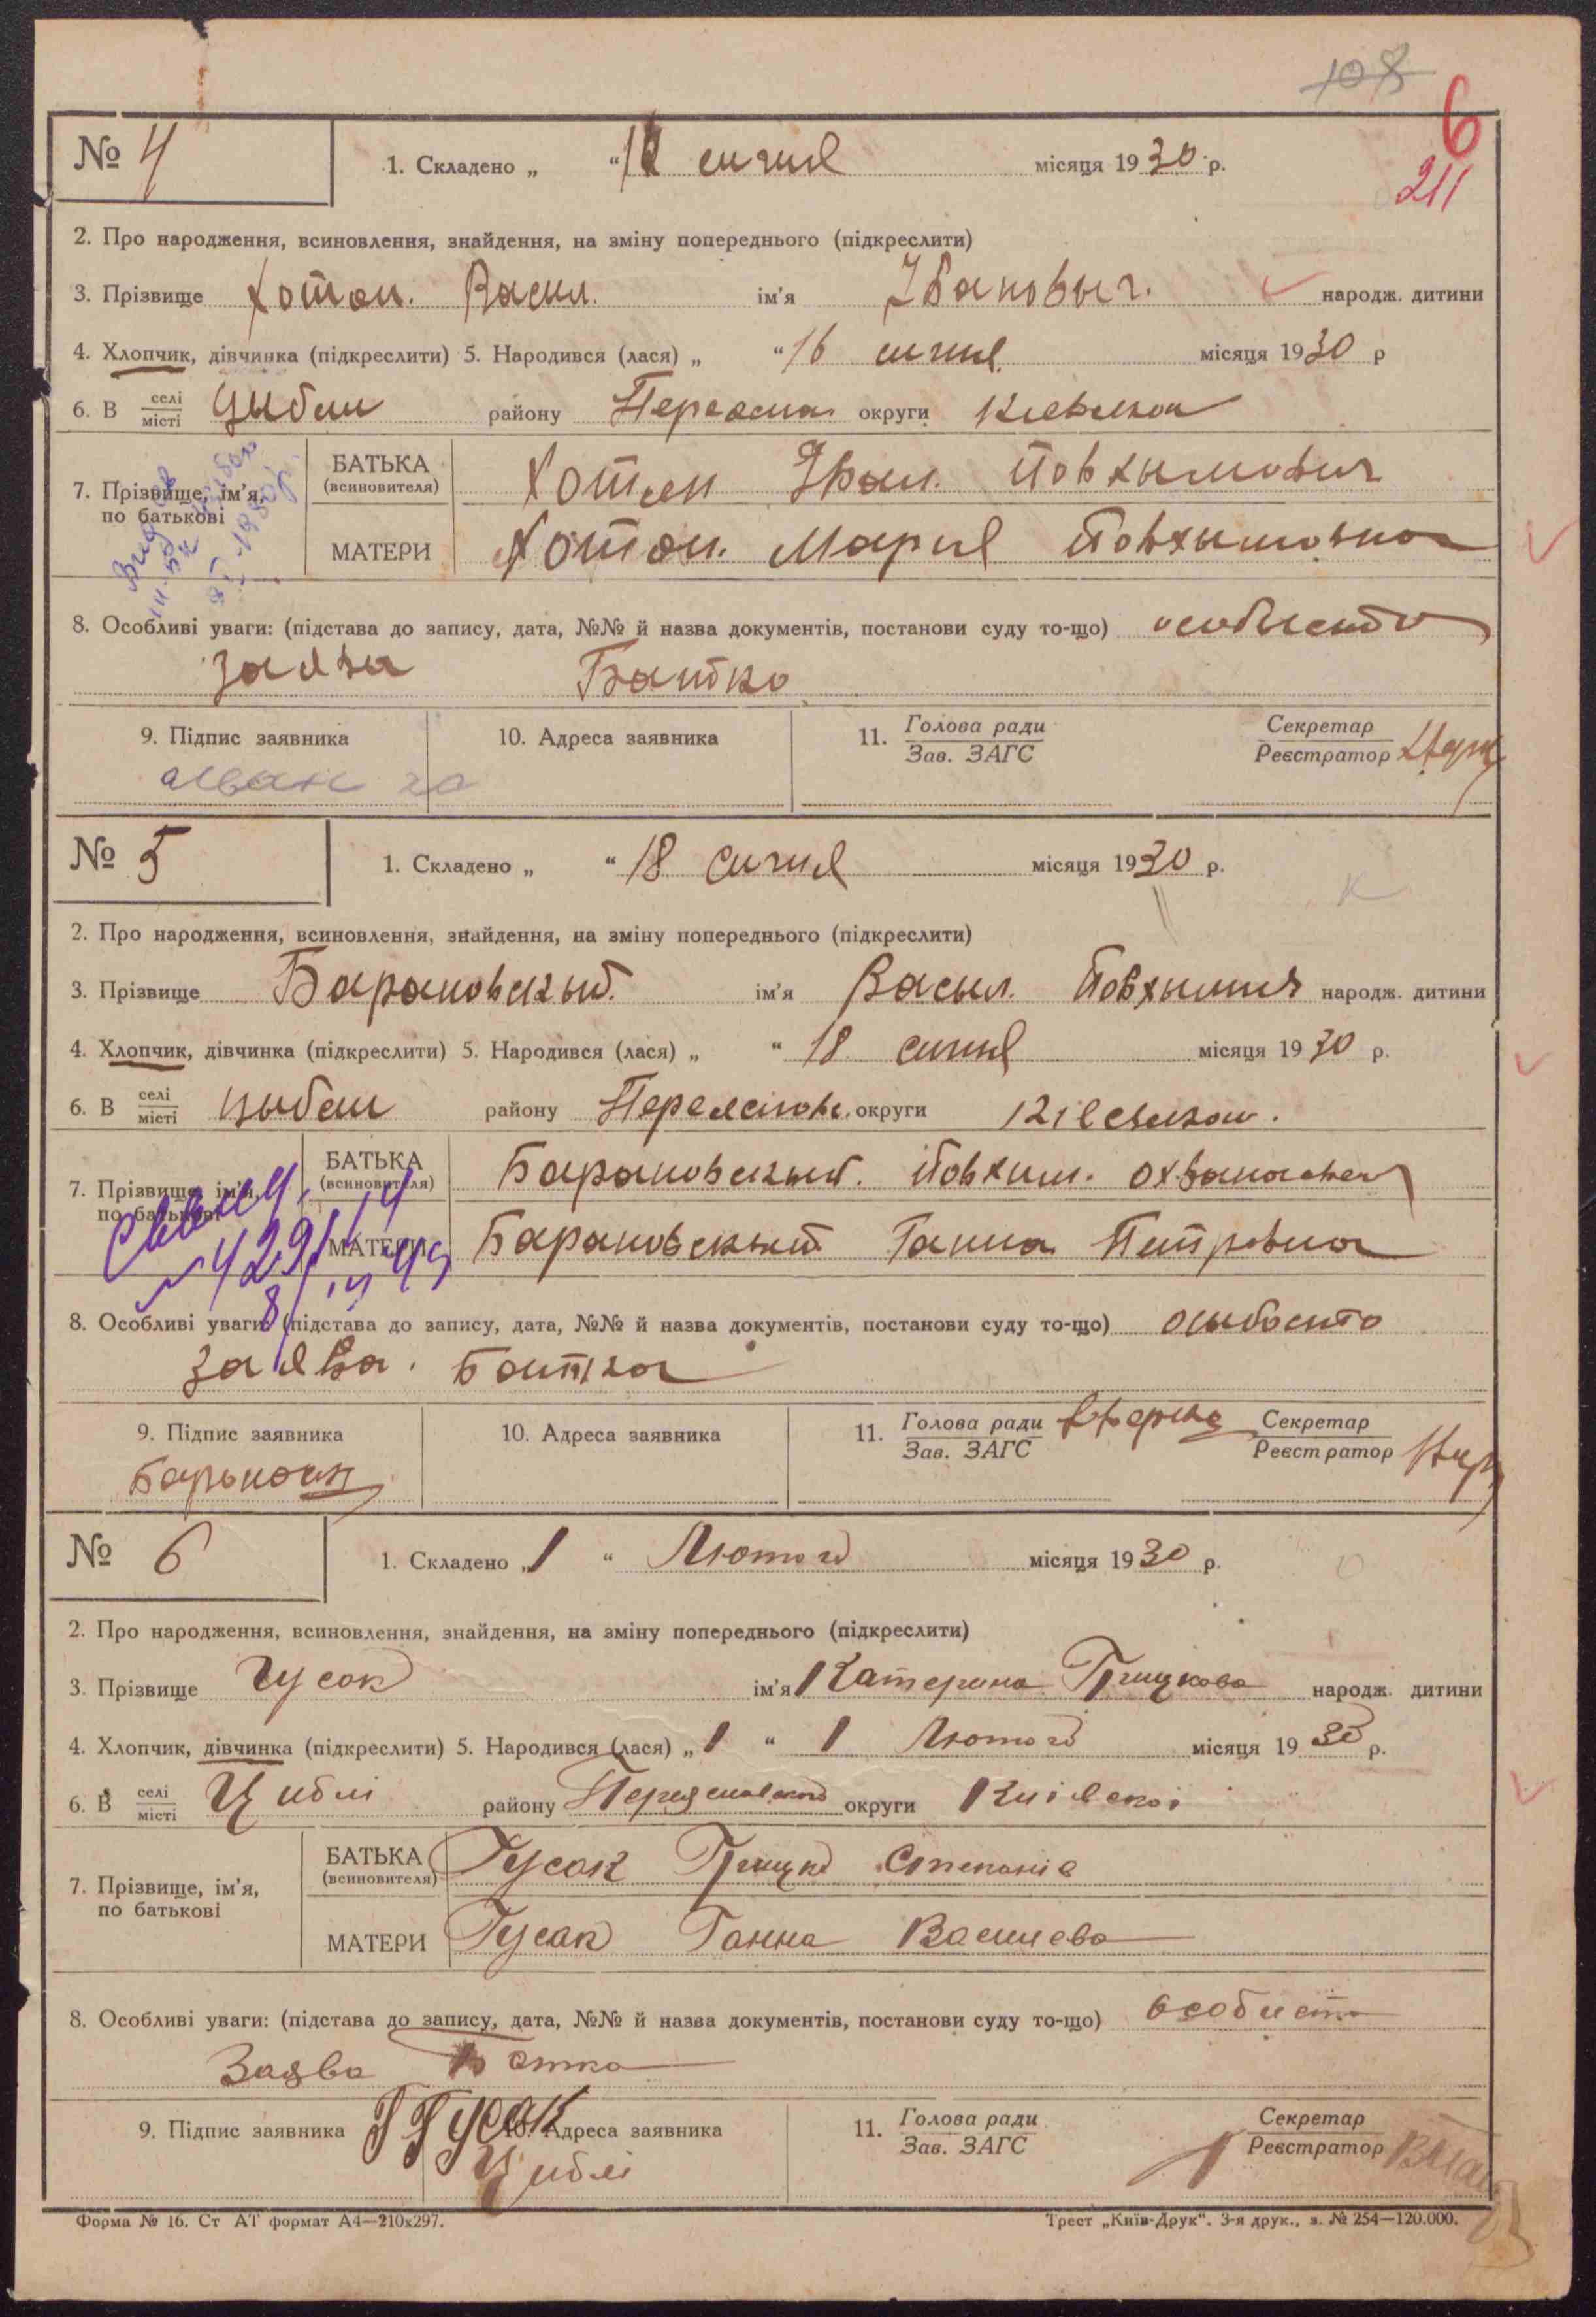 108
6
211
№ 4
1. Складено „ “ сичня місяця 1930 р.
2. Про народження, всиновлення, знайдення, на зміну попереднього (підкреслити)
3. Прізвище Хотян. Васил. ім'я Іванович. народж. дитини
4. Хлопчик, дівчинка (підкреслити) 5. Народився (лася) „ “ 16 сичня місяця 1930 р
6. В селі/місті Цыбли району округи
7. Прізвище, ім'я, по батькові
БАТЬКА (всиновителя) Иван. Повхымович
МАТЕРИ Мария Повхымовна
8. Особливі уваги: (підстава до запису, дата, №№ й назва документів, постанови суду то-що)
заява Батко
9. Підпис заявника 10. Адреса заявника 11. Голова ради/Зав. ЗАГС Секретар/Реєстратор
№ 5
1. Складено „ “ 18 сичня місяця 1930 р.
2. Про народження, всиновлення, знайдення, на зміну попереднього (підкреслити)
3. Прізвище Барановскый. ім'я Васыл. народж. дитини
4. Хлопчик, дівчинка (підкреслити) 5. Народився (лася) „ “ 18 сичня місяця 1930 р.
6. В селі/місті цыбли району округи
7. Прізвище, ім'я, по батькові
БАТЬКА (всиновителя) Барановскый. Повхим.
МАТЕРИ Барановскый Ганна Петровна
8. Особливі уваги: (підстава до запису, дата, №№ й назва документів, постанови суду то-що)
заява. Батка
9. Підпис заявника 10. Адреса заявника 11. Голова ради/Зав. ЗАГС Секретар/Реєстратор
№ 6
1. Складено „1 “ Лютого місяця 1930 р.
2. Про народження, всиновлення, знайдення, на зміну попереднього (підкреслити)
3. Прізвище Гусак ім'я Катерина Грицкова народж. дитини
4. Хлопчик, дівчинка (підкреслити) 5. Народився (лася) „ 1 “ 1 Лютого місяця 1930 р.
6. В селі/місті Циблі району Переяславського округи Київскоі
7. Прізвище, ім'я, по батькові
БАТЬКА (всиновителя) Гусак Грицко Степанів
МАТЕРИ Гусак Ганна Василева
8. Особливі уваги: (підстава до запису, дата, №№ й назва документів, постанови суду то-що) особисто
Заява Батка
9. Підпис заявника Г Гусак 10. Адреса заявника 11. Голова ради/Зав. ЗАГС Секретар/Реєстратор
Циблі
Форма № 16. Ст АТ формат А4—210х297. Трест „Київ-Друк“. 3-я друк., з. № 254—120.000.